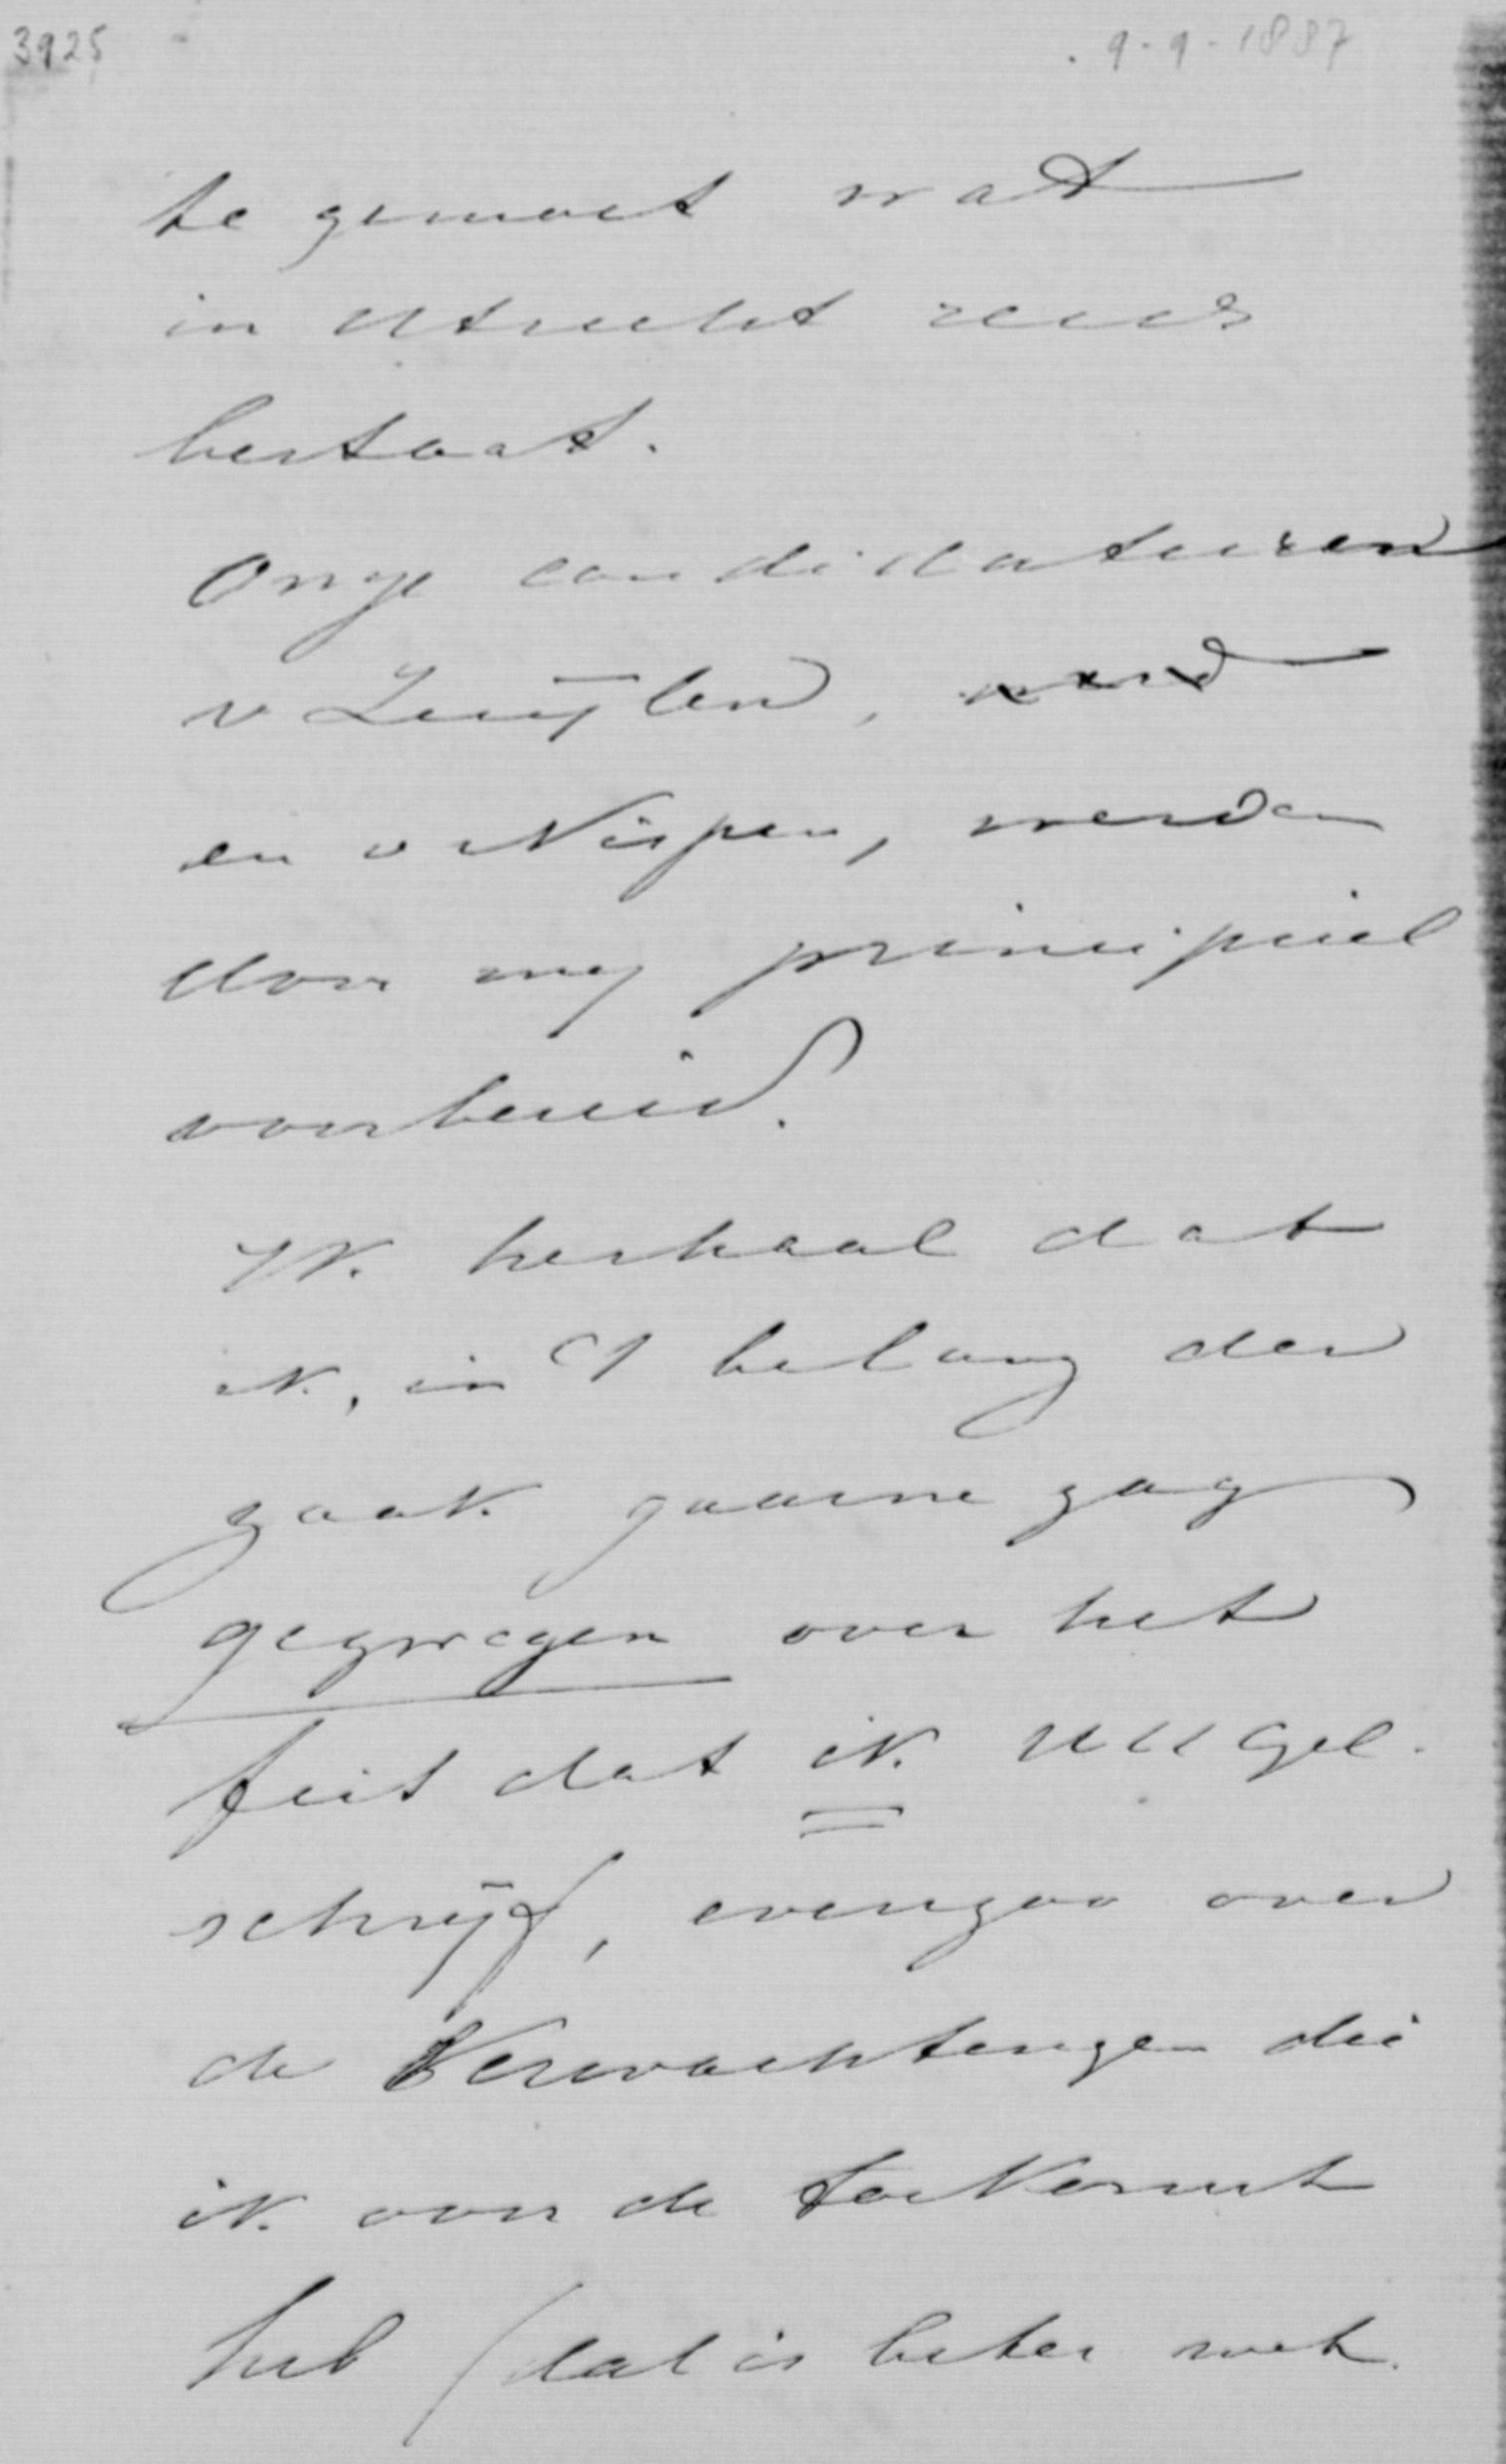 3925
9-9-1887
te gemoet wat
in Utrecht reeds
bestaat.
Onze candidaturen
v Zuijlen,
en v Nispen, werden
door mij principieel
voorbereid.
Ik herhaal dat
ik, in 't belang der
zaak gaarne zag
gezwegen over het
feit dat ik UEdGel.
schrijf, evenzoo over
de Verwachtingen die
ik voor de toekomst
heb (dat is beter